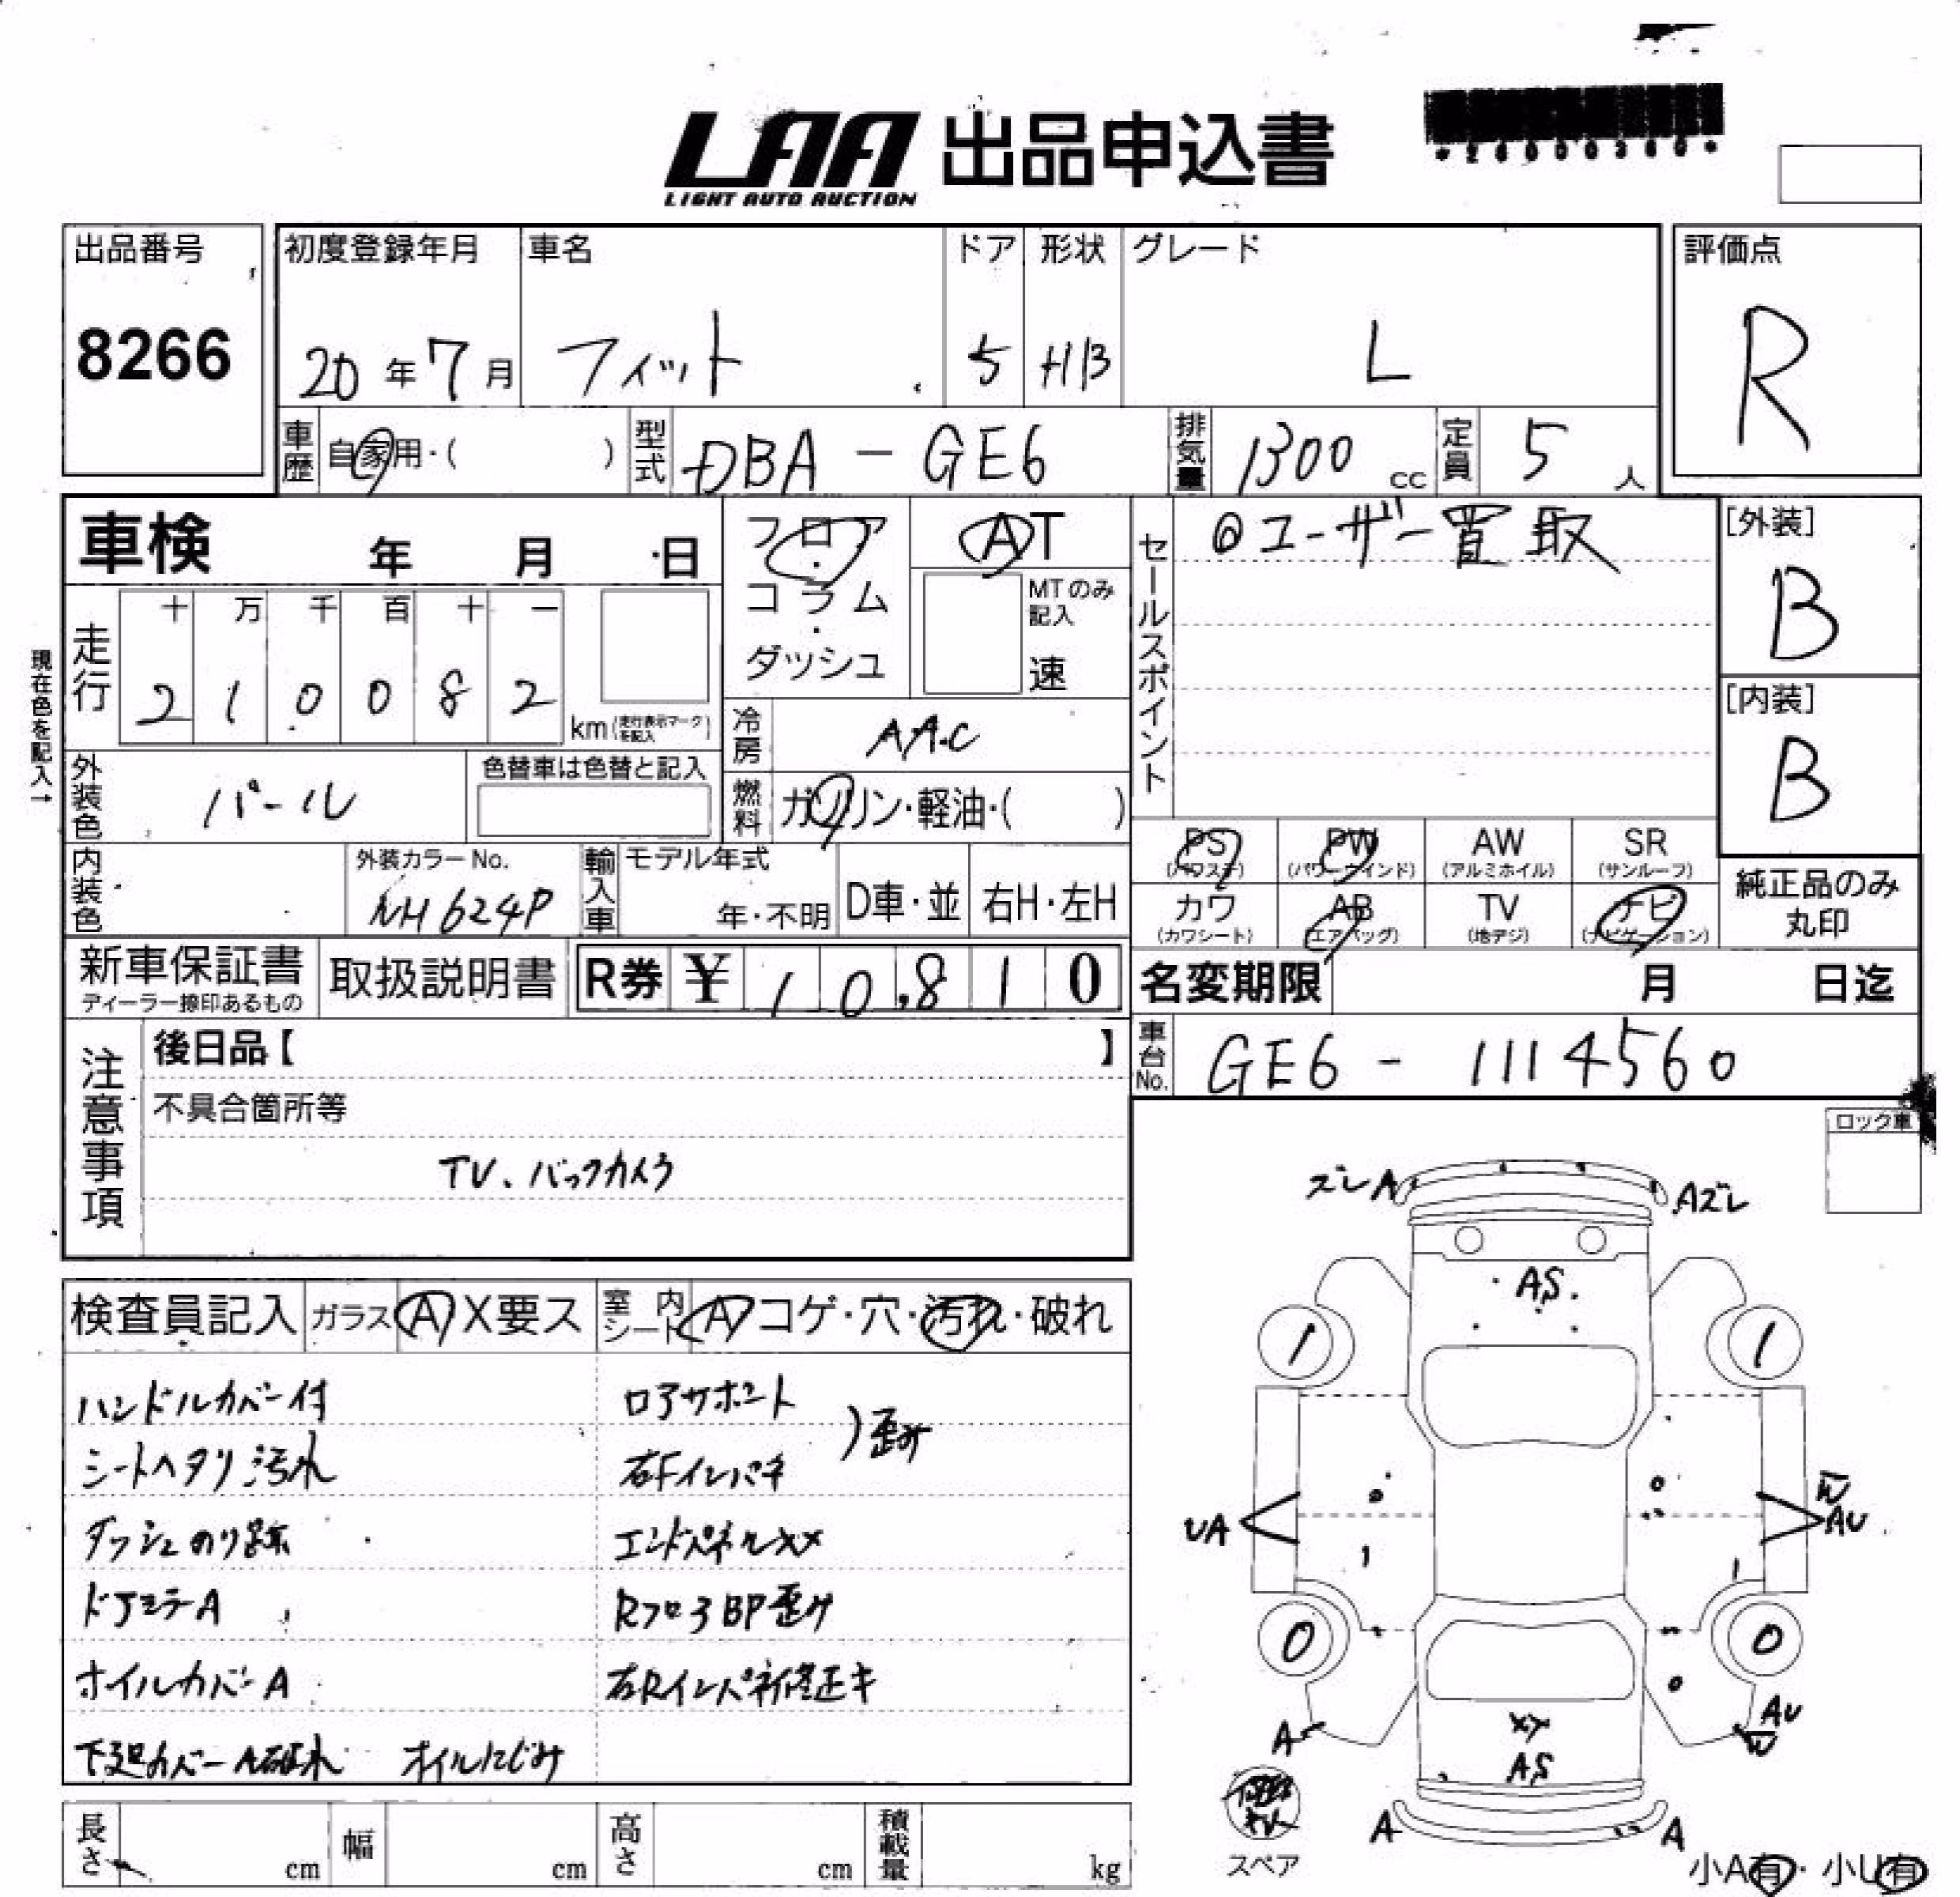 LAA 出品申込書
LIGHT AUTO AUCTION
出品番号
8266
初度登録年月
20年7月
車名
フィット
ドア
5
形状
HB
グレード
L
評価点
R
車歴
自家用・( )
型式
DBA - GE6
排気量
1300 cc
定員
5 人
車検 年 月 日
フロア・コラム・ダッシュ
AT
MTのみ記入
速
セールスポイント
◎ユーザー買取
[外装]
B
[内装]
B
現在色を記入→
走行
十 万 千 百 十 一
2 1 0 0 8 2
km (走行表示マークを記入)
冷房
AAC
燃料
ガソリン・軽油・( )
外装色
パール
色替車は色替と記入
内装色
外装カラーNo.
NH624P
輸入車
モデル年式
年・不明
D車・並
右H・左H
PS (パワステ)
PW (パワーウインド)
AW (アルミホイル)
SR (サンルーフ)
カワ (カワシート)
AB (エアバッグ)
TV (地デジ)
ナビ (ナビゲーション)
純正品のみ丸印
新車保証書
ディーラー捺印あるもの
取扱説明書
R券 ¥ 10,810
名変期限 月 日迄
車台No.
GE6 - 1114560
注意事項
後日品【 】
不具合箇所等
TV、バックカメラ
ロック車
ズレA
Aズレ
AS
1
1
UA
W
AU
0
0
A
AU
W
XX
AS
A
A
スペア
小A有・小U有
検査員記入
ガラス A X要ス
室内シート A コゲ・穴・汚れ・破れ
ハンドルカバー付
シートヘタリ汚れ
ダッシュのり跡
ドアミラーA
ホイルカバーA
下廻カバーA破れ オイルにじみ
ロアサポート
右Fインパネ
)歪み
エンドパネルXX
RフロアBP歪み
右Rインパネ修正キ
長さ cm
幅 cm
高さ cm
積載量 kg